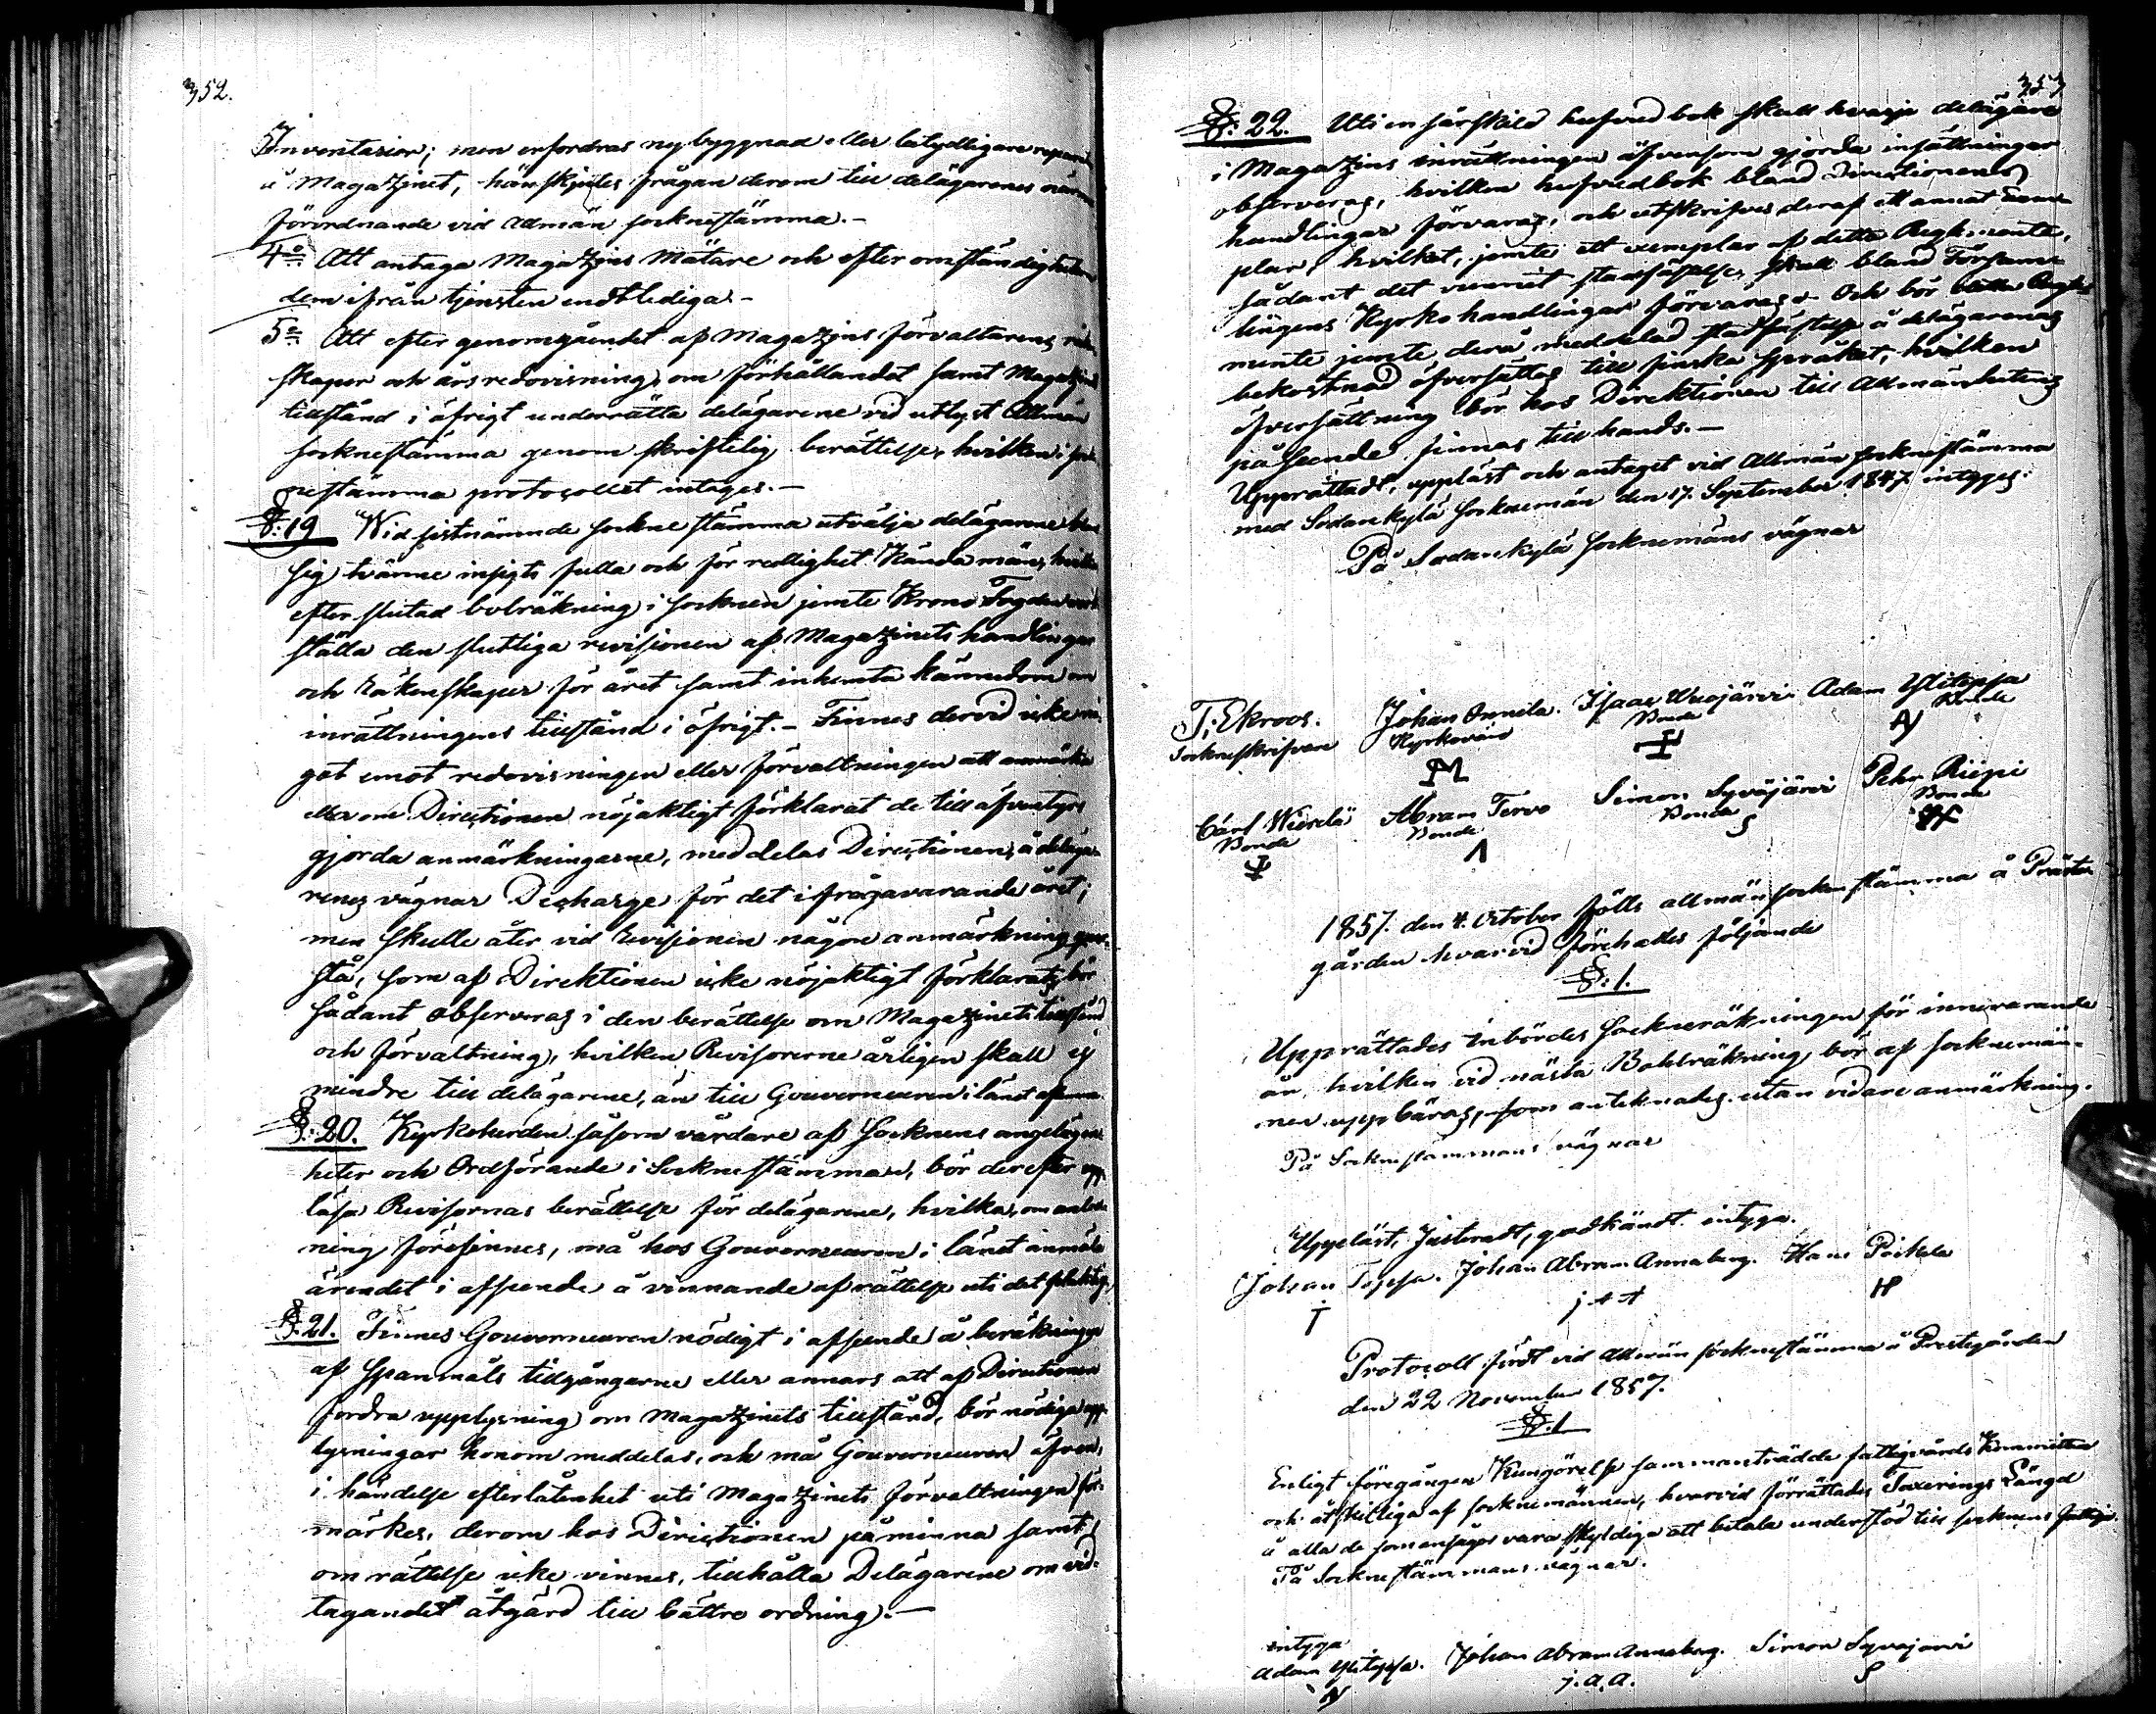 352.
Inventarier; men erfordras nybyggnad eller betydligare
å Magatzinet, hänskjutes frågan derom till delägarenes
förordnande vid allmän socknestämma.-
4:o Att antaga Magatzins Mätare och efter omständigheterna
dem ifrån tjensten entlediga.-
5:o Att efter genomgåendet af Magatzins förvaltarens
skaper och årsredovisning, om förhållandet samt Magatzinets
tillstånd i öfrigt underrätta delägarene vid utlyst Allmän
socknestämma genom skriftelig berättelse, hvilken i sock-
nestämma protocollet intages.-
§: 19 Wid sistnämnde sockne stämma utvälja delägarene
sig tvänne insigts fulla och för redlighet kända män, hvilka
efter slutad bolräkning i socknen jemte Krono Fogden verk-
ställa den slutliga revisionen af Magatzinets handlingar
och Räkenskaper för året samt inhemta kännedom om
inrättningens tillstånd i öfrigt.- Finnes dervid icke nå-
got emot redovisningen eller förvaltningen att anmärka
eller om Directionen nöjaktigt förklarat de till äfventyrs
gjorda anmärkningarne, meddelas Directionen, å delega-
renes vägnar Decharge för det ifrågavarande året;
men skulle åter vid Revisionen någon anmärkning
stå, som af Direktionen icke nöjaktigt förklarats, bör
sådant observeras i den berättelse om Magatzinets tillstånd
och förvaltning, hvilken Revisorerne årligen skall ej
mindre till delägarene, än till Gouverneuren i länet afgifva.
§: 20. Kyrkoherden såsom vårdare af Socknens angelägen-
heter och Ordförande i Socknestämman, bör derefter upp-
läsa Revisornas berättelse för delägarene, hvilka, om anled-
ning förefinnes, må hos Gouverneuren i länet anmäla
ärendet i afseende å vinnande af rättelse uti det felaktiga.
§: 21. Finnes Gouverneuren nödigt i afseende å beräkningen
af Spanmåls tillgångarne eller annars att af Directionen
fordra upplysning om Magatzinets tillstånd, bör nödiga upp-
lysningar honom meddelas, och må Gouverneuren äfven,
i händelse efterlåtenhet uti Magatzinets förvaltningen för-
märkes, derom hos Directionen påminna samt,
om rättelse icke vinnes, tillhålla Delägarene om vid-
tagandet åtgärd till bättre ordning.-
353
§: 22. Uti en särskild hufvud bok skall hvarje delägare
i Magatzins inrättningen äfvensom gjorda insättningar
observeras, hvilken hufvudbok bland Directionens
handlingar förvaras, och utskrifves deraf ett annat exem-
plar, hvilket, jemte ett exemplar af detta Reglemente,
sådant det vunnit stadfästelse, skall bland Försam-
lingens Kyrko handlingar förvaras. Och bör detta Regle-
mente jemte derå meddelad stadfästelse å delägarenas
bekostnad öfversättas till finska språket, hvilken
öfversättning bör hos Direktionen till Allmänhetens
påseende finnas till hands.-
Upprättadt, uppläst och antaget vid Allmän socknestämma
med Sodankylä Socknemän den 17. September 1847 intyges:
På Sodankylä Socknemäns vägnar
T; Ekroos. Johan Onnela. Isaac Unajärvi Adam Ylitepsa
Sockneskrifvare Kyrkovärd Bonde Bonde
Carl Wierelä Abram Tervo Simon Syväjärvi Pehr Riepi
Bonde Bonde Bonde Bonde
1857. den 4. October hölls allmän sockenstämma å Präste-
gården hvarvid förehades följande
§: 1.
Upprättades inbördes Sockneräkningen för innevarande
år, hvilken vid nästa Bohlräkning, bör af socknemän-
nen uppbäras, som antecknades utan vidare anmärkning.
På Socknestämmans vägnar
Uppläst, Justeradt, godkändt intyga.
Johan Tepsa. Johan Abram Annaberg. Hans Poikela
J A A HP
Protocoll fördt vid Allmän socknestämma å Prestegården
den 22 November 1857.
§. 1
Enligt föregången Kungörelse sammanträdde fattigvårds Kommitten
och åtskilliga af socknemännen, hvarvid förrättades Taxerings Längd
å alla de som ansågos vara skyldiga att betala understöd till socknens fattiga.
På Socknestämmans vägnar.
intyga
Adam Ylitepsa. Johan Abram Annaberg. Simon Syväjärvi
j. a. a. S